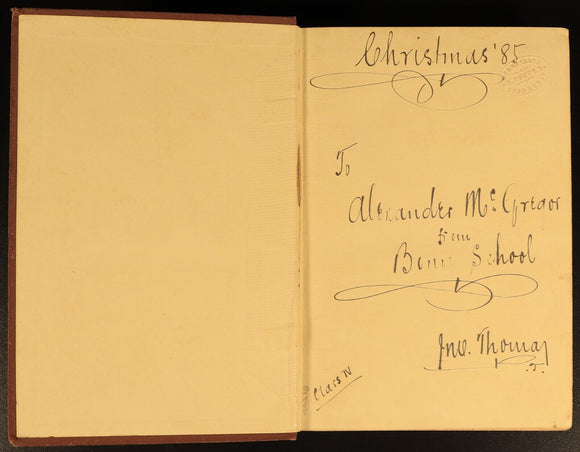 Christmas '85
To
Alexander McGregor
from
School
Jno. Thomas
Class IV